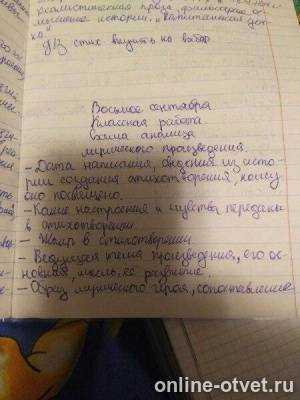 реалистическая проза, философское ос-
мысление истории, "Капитанская доч-
ка"
Д/З стих выучить на выбор.
Восьмое сентября
Классная работа
Схема анализа
лирического произведения.
- Дата написания, сведения из исто-
рии создания стихотворения, кому
оно посвящено.
- Какие настроения и чувства переданы
в стихотворении.
- Жанр в стихотворении.
- Ведущая тема произведения, его ос-
новная мысль, её развитие.
- Образ лирического героя, сопоставление
online-otvet.ru